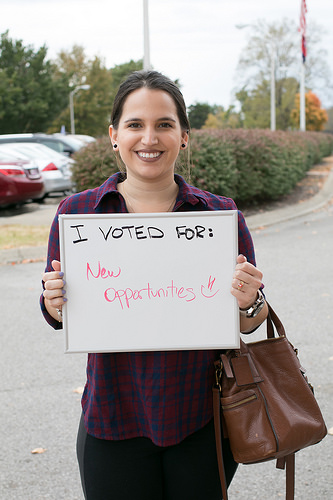 I VOTED FOR:
New
opportunities